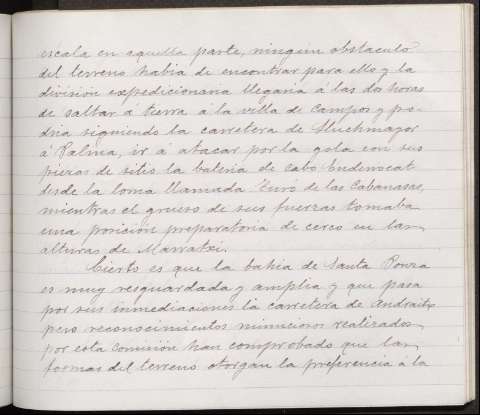 escala en aquella parte, ningún obstaculo
del terreno habia de encontrar para ello y la
división expedicionaria llegaria á las dos horas
de saltar á tierra á la villa de Campos y po-
dria siguiendo la carretera de Lluchmayor
á Palma, ir á atacar por la gola con sus
piezas de sitio la bateria de cabo Enderrocat
desde la loma llamada Turó de las Cabanasas,
mientras el grueso de sus fuerzas tomaba
una posición preparatoria de cerco en las
alturas de Marratxi.
Cierto es que la bahia de Santa Ponza
es muy resguardada y amplia y que pasa
por sus inmediaciones la carretera de Andraitx
pero reconocimientos minuciosos realizados
por esta Comisión han comprobado que las
formas del terreno otorgan la preferencia á la